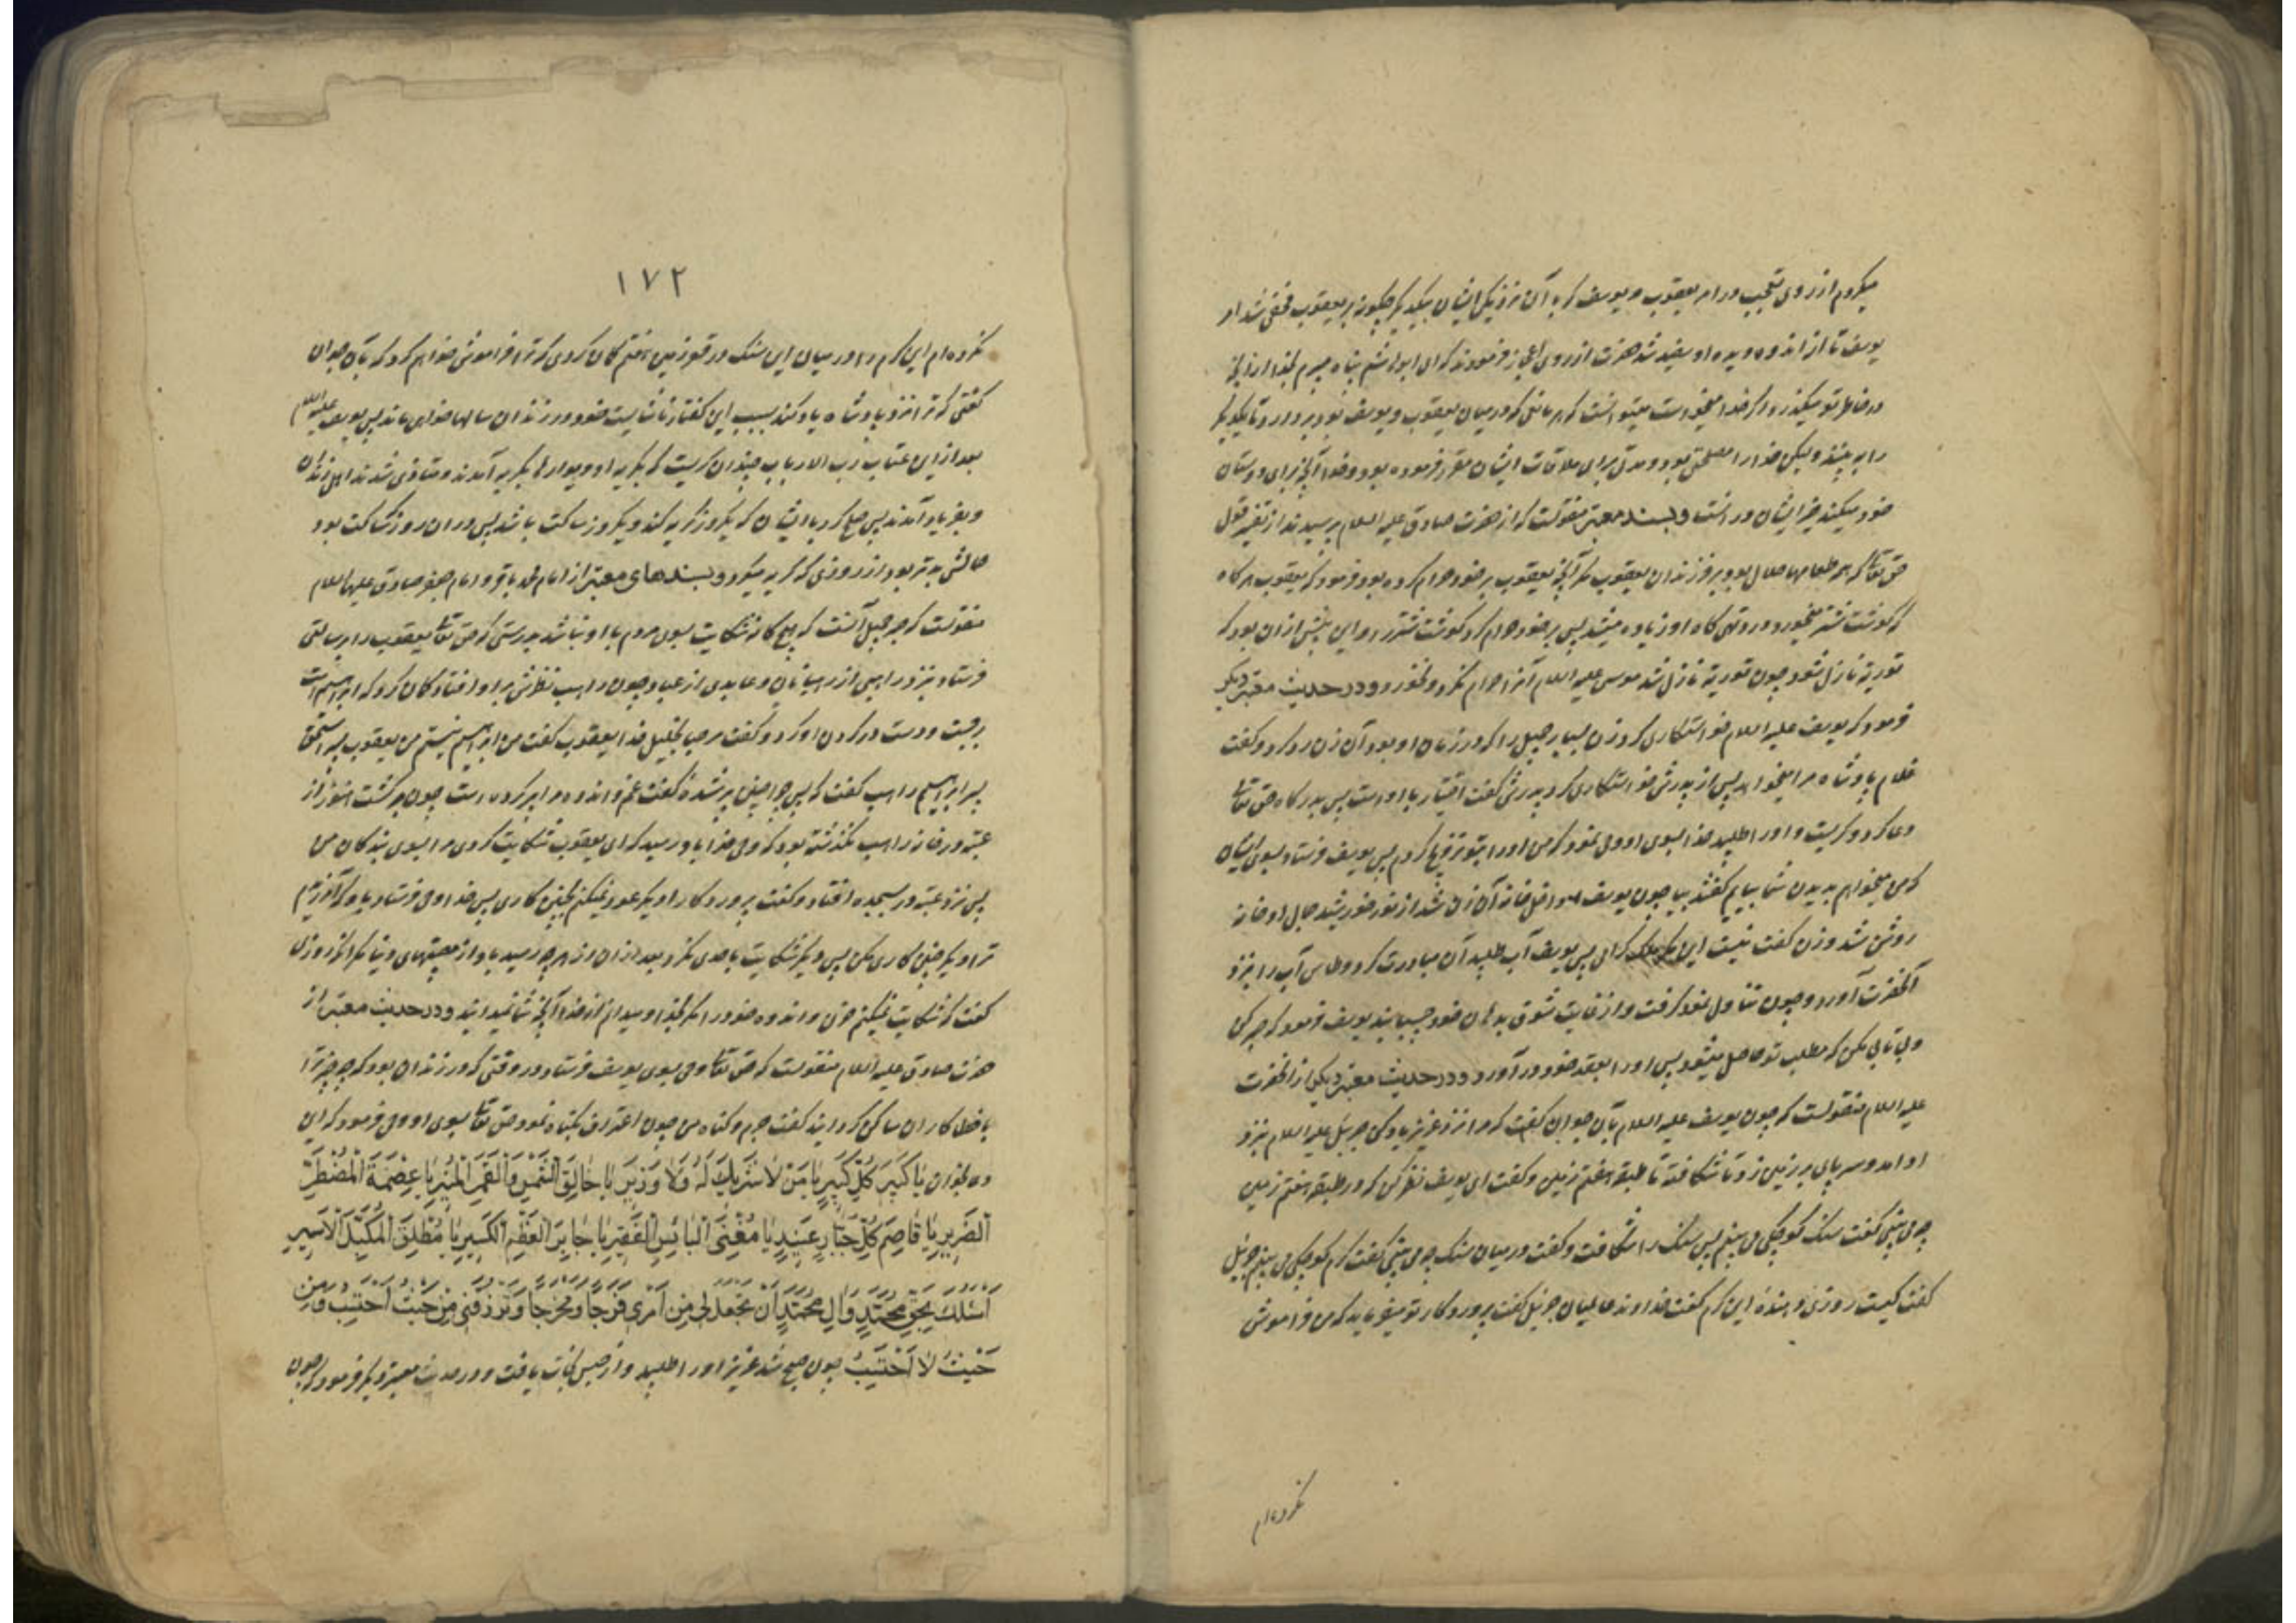 میکردم از روی تعجب در امر یعقوب و یوسف که با آن نزدیکی ایشان بیکدیگر چگونه بر یعقوب مخفی شد امر
یوسف تا از اندوه دیده او سفید شد حضرت از روی اعجاز فرمودند که ای ابو هاشم پناه میبرم بخدا از آنچه
در خاطر تو میگذرد اگر خدا میخواست میتوانست که هر مانعی که در میان یعقوب و یوسف بود بردارد تا یکدیگر
را به بینند ولیکن خدا را مصلحتی بود و مدتی برای ملاقات ایشان مقرر فرموده بود و خدا آنچه برای دوستان
خود میکند خیر ایشان در انست و بسند معتبر منقولست که از حضرت صادق علیه السلام پرسیدند از تفسیر قول
حق تعالی که همه طعامها حلال بود بر فرزندان یعقوب مگر آنچه یعقوب بر خود حرام کرده بود فرمود که یعقوب هر گاه
که گوشت شتر میخورد درد تهی گاه او زیاده میشد پس بر خود حرام کرد گوشت شتر را و این پیش از ان بود که
توریة نازل شود چون توریة نازل شد موسی علیه السلام آنرا حرام نکرد و نخورد و در حدیث معتبر دیگر
فرمود که یوسف علیه السلام خواستکاری کرد زن بسیار جمیله را که در زمان او بود آن زن رد کرد و گفت
غلام پادشاه مرا میخواهد پس از پدرش خواستکاری کرد پدرش گفت اختیار با اوست پس بدرگاه حق تعالی
دعا کرد و گریست و او را طلبید خدا بسوی او وحی نمود که من او را بتو تزویج کردم پس یوسف فرستاد بسوی ایشان
که من میخواهم بدیدن شما بیایم گفتند بیا چون یوسف داخل خانه آن زن شد از نور خورشید جمال او خانه
روشن شد و زن گفت نیست این مگر ملک گرامی پس یوسف آب طلبید آن مبادرت کرد و طاس آب را بنزد
آنحضرت آورد و چون تناول نمود گرفت و از غایت شوق بدهان خود چسپانید یوسف فرمود که صبر کن
و بی تابی مکن که مطلب تو حاصل میشود پس او را بعقد خود در آورد و در حدیث معتبر دیگر از انحضرت
علیه السلام منقولست که چون یوسف علیه السلام بآن جوان گفت که مرا نزد عزیز یاد کن جبرئیل علیه السلام بنزد
او امد و سر پای بر زمین زد تا شکافته تا طبقه هفتم زمین و گفت ای یوسف نظر کن که در طبقه هفتم زمین
چه می بینی گفت سنک کوچکی می بینم پس سنک را شکافت و گفت در میان سنک چه می بینی گفت کرم کوچکی می بینم جبرئیل
گفت کیست روزی دهنده این کرم گفت خداوند عالمیان جبرئیل گفت پروردکار تو میفرماید که من فراموش
نکرده‌ام
۱۷۲
نکرده‌ام این کرم را در میان این سنک در قعر زمین هفتم گمان کردی که ترا فراموش خواهم کرد که بآن جوان
گفتی که ترا نزد پادشاه یاد کند بسبب این گفتار ناشایست خود در زندان سالها خواهی ماند پس یوسف علیه السلام
بعد از این عتاب رب الارباب چندان گریست که بگریه او دیوارها بگریه آمدند و متاذی شدند اهل زندان
و بفریاد آمدند پس صلح کرد با ایشان که یکروز گریه کند و یکروز ساکت باشد پس در ان روز که ساکت بود
حالش بدتر بود از روزی که گریه میکرد و بسندهای معتبر از امام محمد باقر و امام جعفر صادق علیهما السلام
منقولست که صبر جمیل آنست که هیچ گانه شکایت بسوی مردم با او نباشد بدرستی که حق تعالی یعقوب را برسالتی
فرستاد بنزد راهبی از رهبانان و عابدی از عباد چون راهب نظرش بر او افتاد گمان کرد که ابراهیم است
برجست و دست در گردن او کرد و گفت مرحبا بخلیل خدا یعقوب گفت من ابراهیم نیستم من یعقوب پسر اسحق
پسر ابراهیم راهب گفت که پس چرا چنین پیر شده گفت غم و اندوه مرا پیر کرده است چون برگشت هنوز از
عتبه در خانه راهب نگذشته بود که وحی خدا باو رسید که ای یعقوب شکایت کردی مرا بسوی بندگان من
پس نزد عتبه در بسجده افتاد و گفت پروردکارا دیگر عود نمیکنم بچنین کاری پس خدا وحی فرستاد باو که آمرزیدم
ترا دیگر چنین کاری مکن پس دیگر شکایت باحدی نکرد بعد از ان از هر چه رسید باو از مصیبتهای دنیا مگر انکه روزی
گفت که شکایت نمیکنم حزن و اندوه خود را مگر بخدا و میدانم از خدا آنچه شما نمیدانید و در حدیث معتبر از
حضرت صادق علیه السلام منقولست که حق تعالی وحی بسوی یوسف فرستاد در وقتی که در زندان بود که چه چیز ترا
با خطاکاران ساکن گردانید گفت جرم و گناه من چون اعتراف بگناه نمود حق تعالی بسوی او وحی فرمود که این
دعا بخوان یَا كَبِیرَ كُلِّ كَبِیرٍ یَا مَنْ لَا شَرِیكَ لَهُ وَلَا وَزِیرَ یَا خَالِقَ الشَّمْسِ وَالْقَمَرِ الْمُنِیرِ یَا عِصْمَةَ الْمُضْطَرِّ
الضَّرِیرِ یَا قَاصِمَ كُلِّ جَبَّارٍ عَنِیدٍ یَا مُغْنِیَ الْبَائِسِ الْفَقِیرِ یَا جَابِرَ الْعَظْمِ الْكَسِیرِ یَا مُطْلِقَ الْمُكَبَّلِ الْاَسِیرِ
اَسْئَلُكَ بِحَقِّ مُحَمَّدٍ وَآلِ مُحَمَّدٍ اَنْ تَجْعَلَ لِی مِنْ اَمْرِی فَرَجًا وَمَخْرَجًا وَتَرْزُقَنِی مِنْ حَیْثُ اَحْتَسِبُ وَمِنْ
حَیْثُ لَا اَحْتَسِبُ چون صبح شد عزیز او را طلبید و از حبس نجات یافت و در حدیث معتبر دیگر فرمود که چون